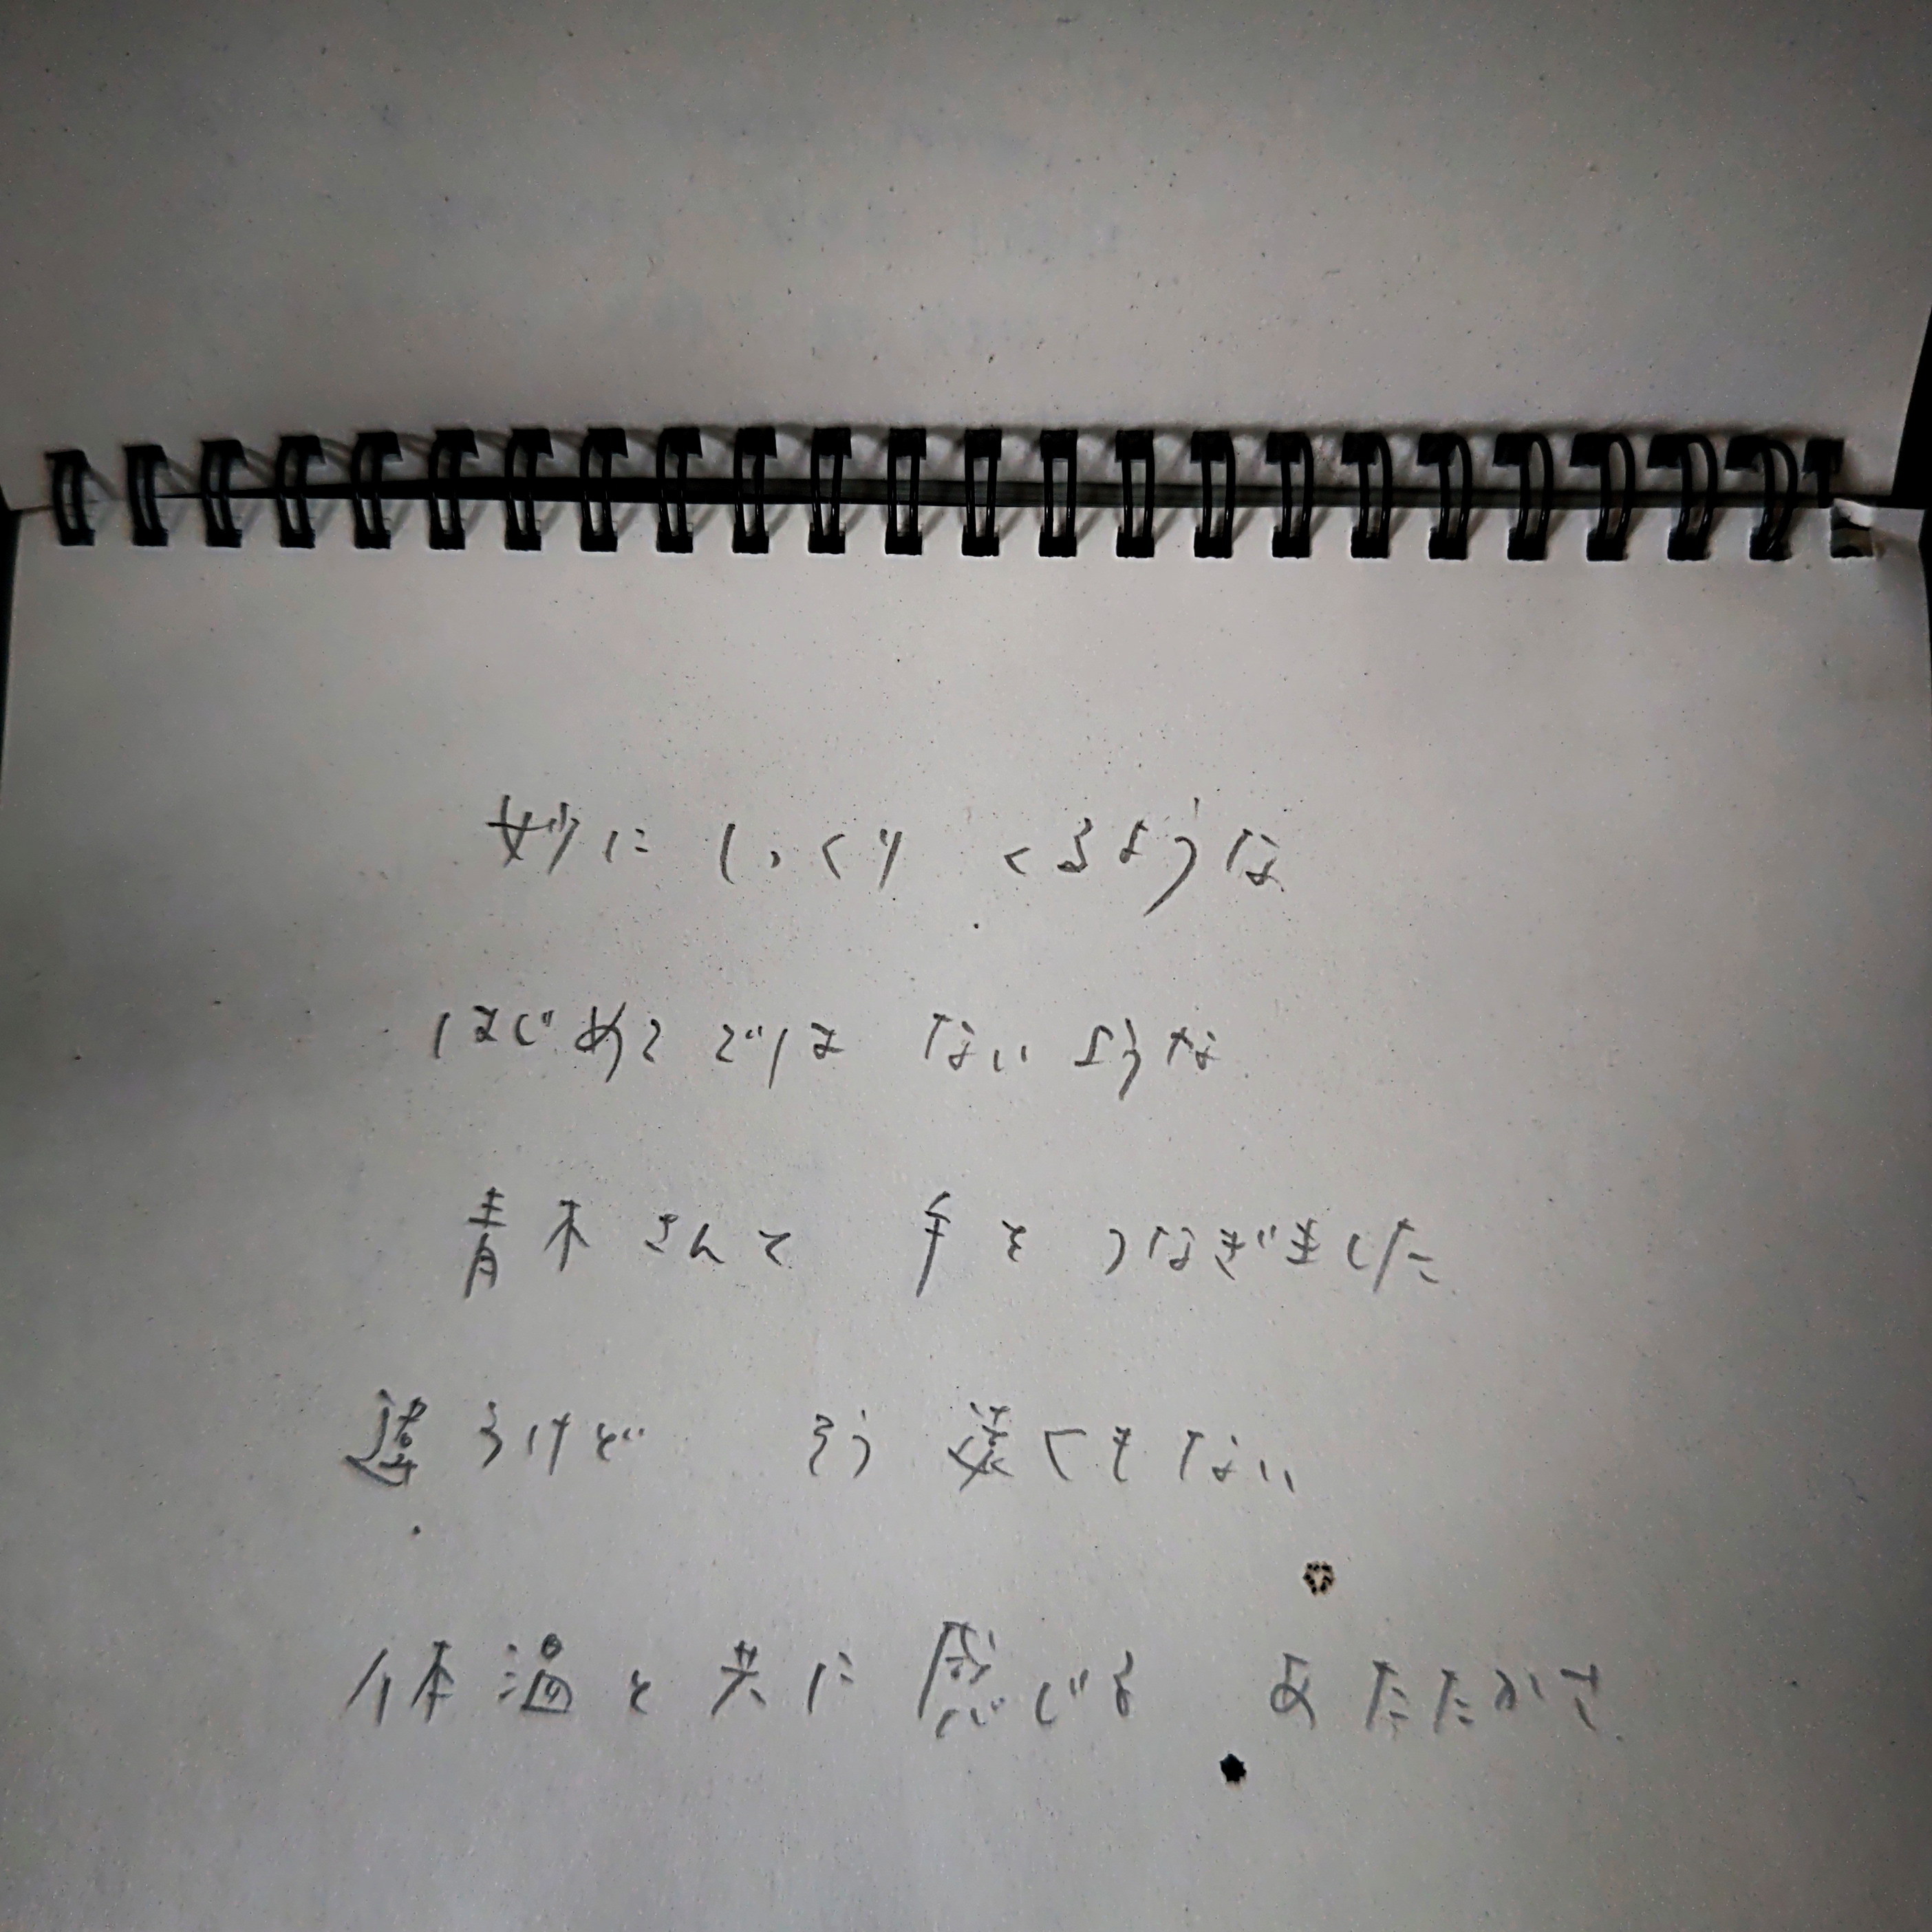 妙に しっくり くるような
はじめてでは ないような
青木さんと 手を つなぎました
違うけど そう 遠くもない
体温と共に 感じる あたたかさ